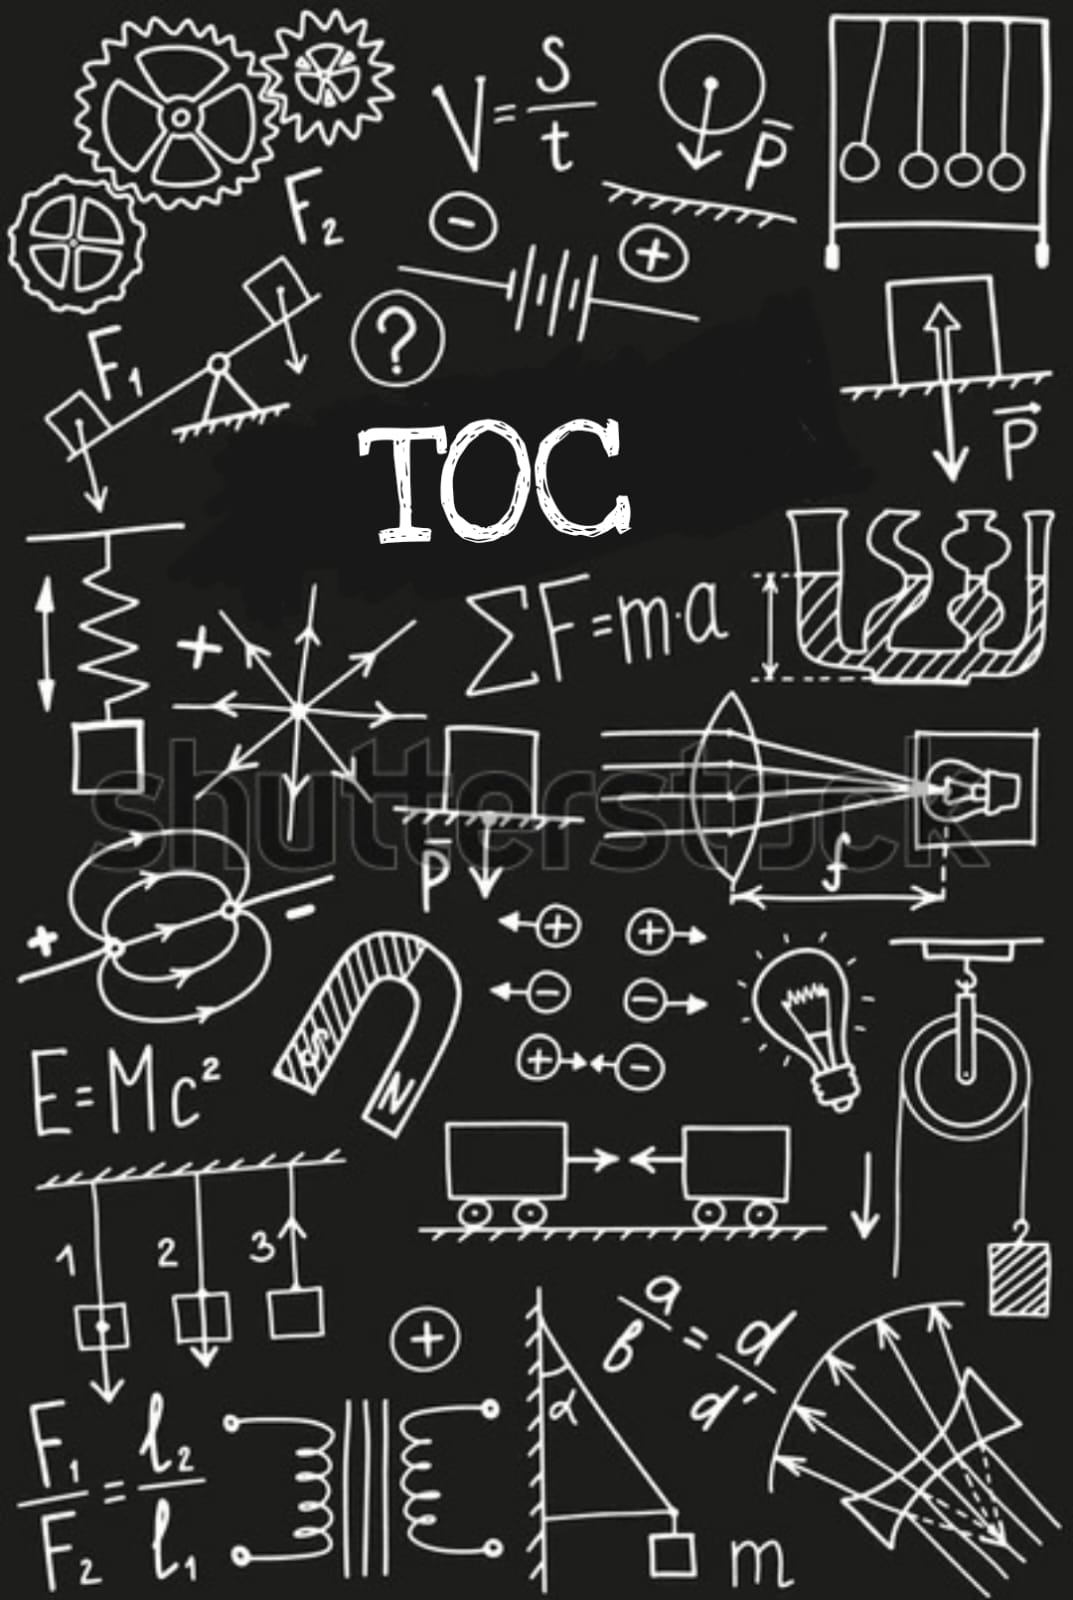 V = S/t
P
F2
−
+
?
F1
TOC
P
ΣF=m·a
+
shutterstock
f
P
+
−
+ +
− −
+ −
S
N
E=Mc²
1 2 3
+
a/b = d/d'
α
F1/F2 = l2/l1
m